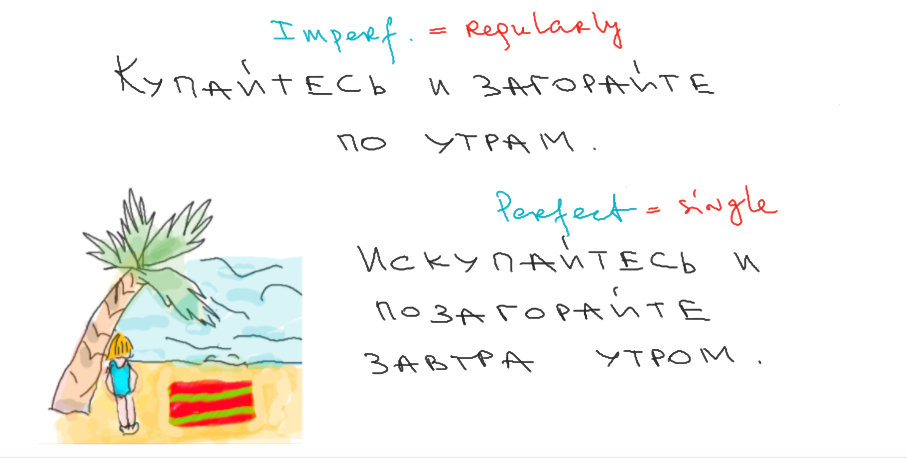 Imperf. = Regularly
Купайтесь и загорайте
по утрам.
Perfect = single
Искупайтесь и
позагорайте
завтра утром.